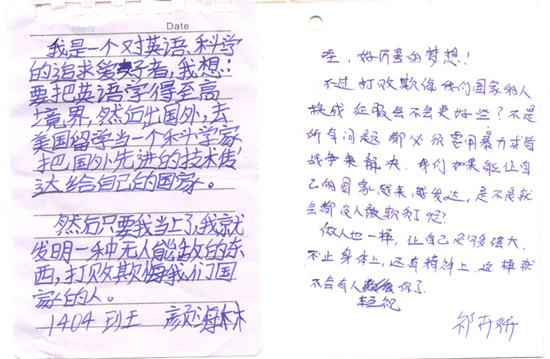 Date
我是一个对英语、科学
的追求爱好者,我想:
要把英语学得至高
境界,然后出国外,去
美国留学当一个科学家,
把国外先进的技术传
达给自己的国家。
然后只要我当上了,我就
发明一种无人能敌的东
西,打败欺侮我们国
家的人。
1404班
哇,好厉害的梦想!
不过打败欺侮我们国家的人
换成征服会不会更好些?不是
所有问题都必须要用暴力或者
战争来解决,我们如果能让自
己的国家越来越发达,是不是就
会都没人敢欺负了呢?
做人也一样,让自己足够强大,
不止身体上,还有精神上,这样就
不会有人你了.
轻视